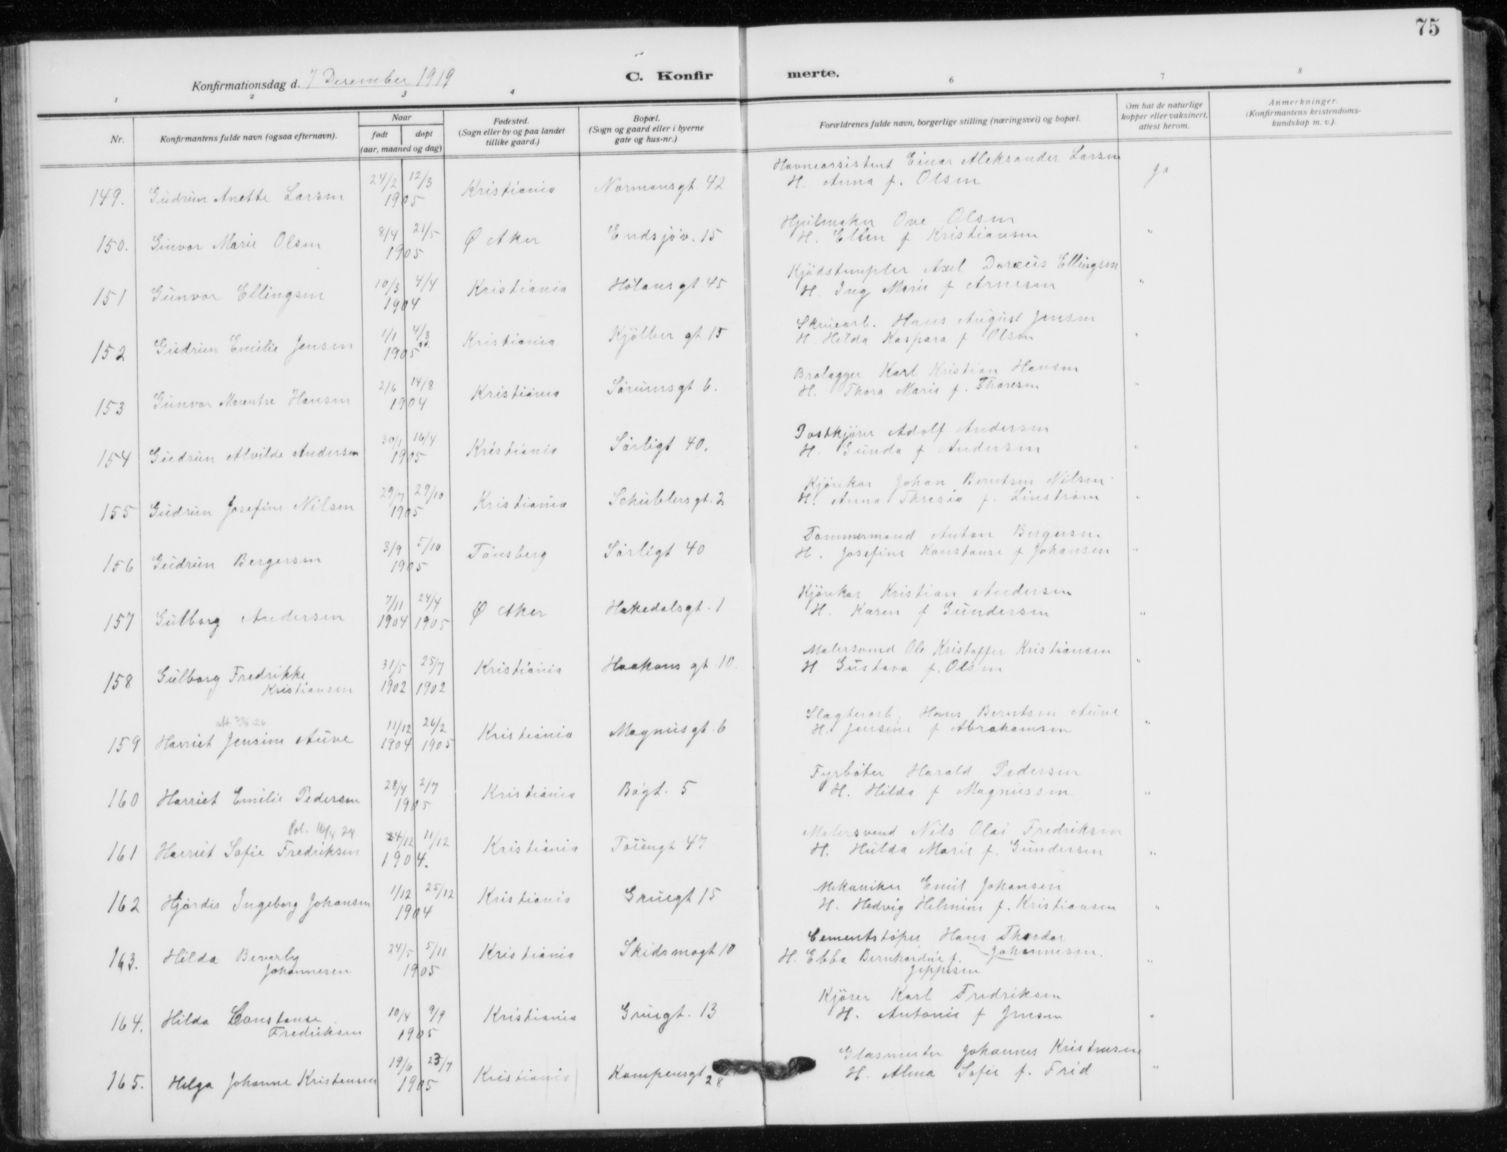 75
Konfirmationsdag d. 7 December 1919
C. Konfirmerte.
1 2 3 4 6 7 8
Nr.
Konfirmantens fulde navn (ogsaa efternavn).
Naar
født døpt
(aar, maaned og dag)
Fødested.
(Sogn eller by og paa landet
tillike gaard.)
Bopæl.
(Sogn og gaard eller i byerne
gate og hus-nr.)
Forældrenes fulde navn, borgerlige stilling (næringsvei) og bopæl.
Om hat de naturlige
kopper eller vaksinert,
attest herom.
Anmerkninger.
(Konfirmantens kristendoms-
kundskap m. v.).
149. Gudrun Anette Larsen 24/2 12/3 1905 Kristiania Normansgt 42 Havneassistent Einar Aleksander Larsen ja
H. Anna f. Olsen
150. Gunvor Marie Olsen 8/4 21/5 1905 Ø Aker Endsjøv. 15 Hjulmaker Ove Olsen "
H. Ellen f Kristiansen
151 Gunvor Ellingsen 10/3 4/4 1904 Kristiania Hølansgt 45 Axel Ellingsen "
H. Ing Marie f Arnesen
152 Gudrun Emilie Jensen 1/1 4/3 1905 Kristiania Kjølber gt 15 Skruearb. Hans August Jensen "
H. Hilda Kaspara f Olsen
153 Gunvor Hansen 2/6 14/8 1904 Kristiania Sørumsgt 6. Brolægger Karl Kristian Hansen "
H. Thora Marie f. Thoresen
154 Gudrun Alvilde Andersen 30/1 16/4 1905 Kristiania Sørligt 40. Postkjører Adolf Andersen "
H. Gunda f Andersen
155 Gudrun Josefine Nilsen 29/7 29/10 1905 Kristiania Schüblersgt. 2 Kjørekar Johan Berntsen Nilsen "
H. Anna Thresia f. Linstrøm
156 Gudrun Bergersen 3/9 5/10 1905 Tønsberg Sørligt 40 Tømmermand Anton Bergersen "
H. Josefine Konstanse f Johansen
157 Gulborg Andersen 7/11 1904 24/4 1905 Ø Aker Hakedalsgt. 1 Kjørekar Kristian Andersen "
H. Karen f Gundersen
158 Gulborg Fredrikke 31/5 1902 25/7 1902 Kristiania Haakons gt 10. Malersvend Ole Kristoffer Kristiansen "
Kristiansen H Gustava f. Olsen
159 Harriet Jensine Auve 11/12 1904 26/2 1905 Kristiania Magnusgt 6 Slagterarb. Hans Berntsen Auve "
H. Jensine f Abrahamsen
160 Harriet Emilie Pedersen 28/4 2/7 1905 Kristiania Bøgt. 5 Fyrbøter Harald Pedersen "
H. Hilda f Magnussen
161 Harriet Sofie Fredriksen 24/12 11/12 1904. Kristiania Tøiengt 47 Malersvend Nils Olai Fredriksen "
H. Hulda Marie f. Gundersen
162 Hjørdis Ingeborg Johansen 1/12 25/12 1904 Kristiania Gruegt 15 Mekaniker Emil Johansen "
H. Hedvig Helmine f. Kristiansen
163. Hilda Beverly 24/5 5/11 1905 Kristiania Skidsmogt 10 Cementstøper Hans Theodor Johannesen. "
Johannesen H. Ebba Bernhardine f. Jeppesen
164. Hilda Constanse 10/4 9/9 1905 Kristiania Gruegt. 13 Kjører Karl Fredriksen "
Fredriksen H. Antonie f Jensen
165. Helga Johanne Kristensen 19/6 23/7 1905 Kristiania Kampensgt 28 Glasmester Johannes Kristensen "
H. Alma Sofie f. Frid